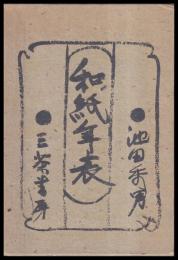 和紙年表
池田秀男
三茶書房